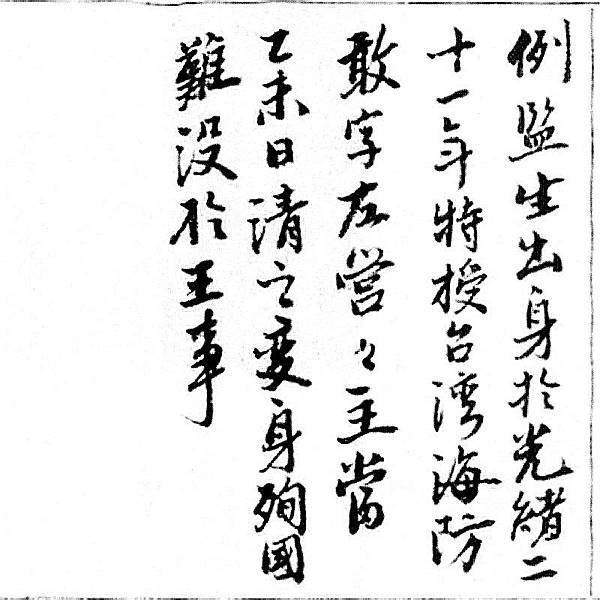 例監生出身於光緒二
十一年特授台湾海防
敢字左営々主當
乙未日清之変身殉国
難没於王事